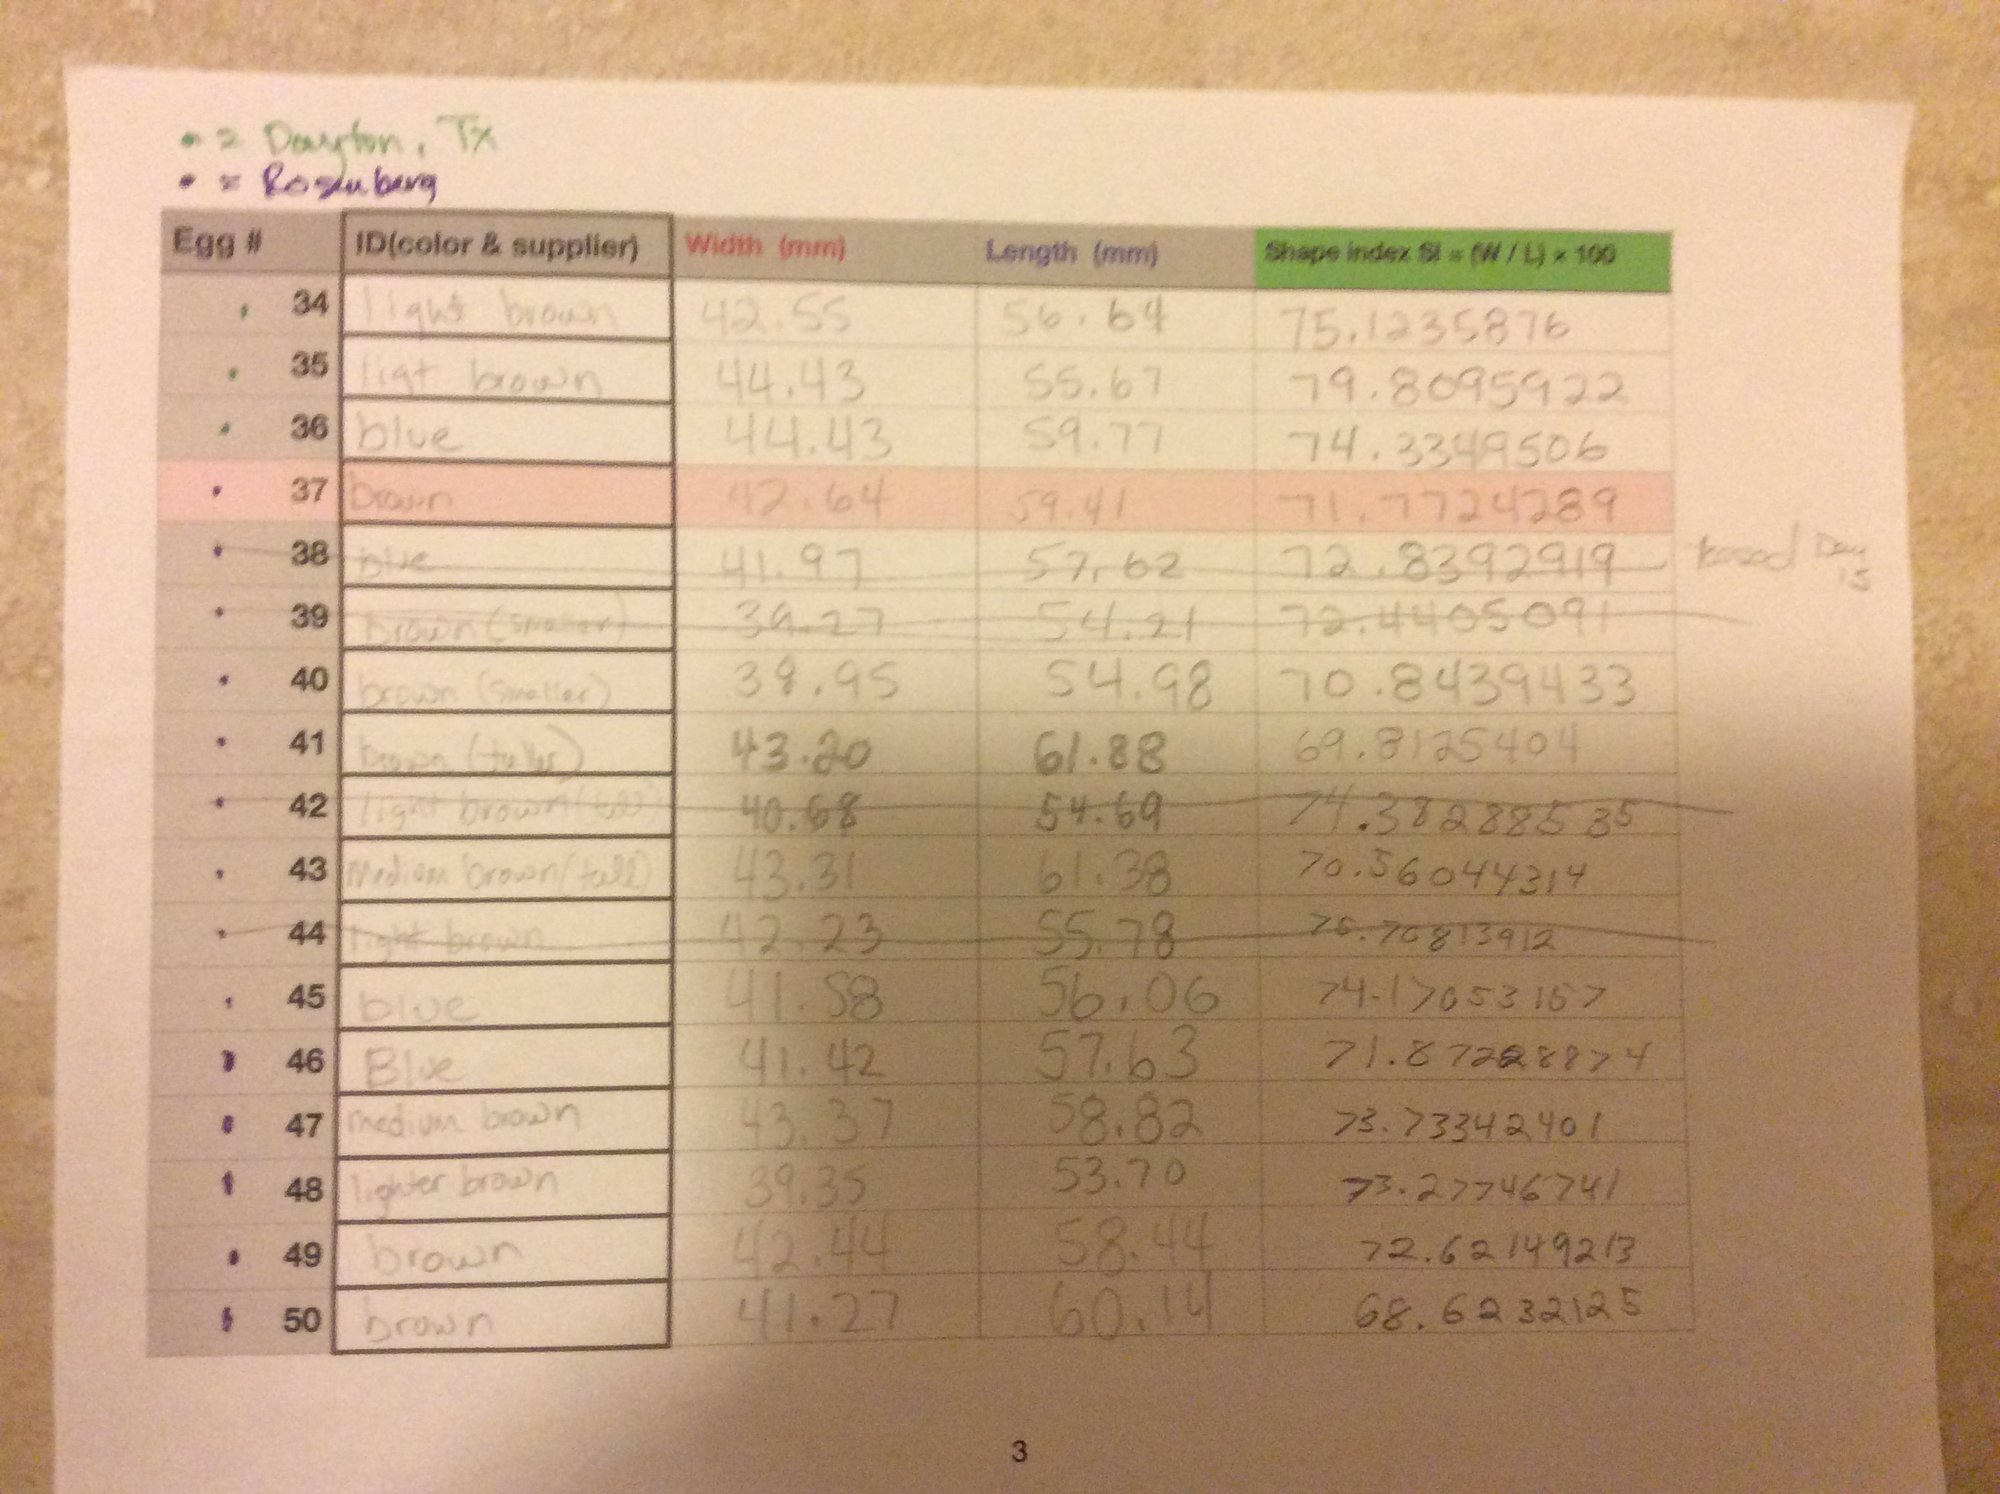 • = Dayton, Tx
• = Rosenberg
Egg # ID(color & supplier) Width (mm) Length (mm) Shape index SI = (W / L) × 100
34 light brown 42.55 56.64 75.1235876
35 ligt brown 44.43 55.67 79.8095922
36 blue 44.43 59.77 74.3349506
37 brown 42.64 59.41 71.7724289
38 blue 41.97 57.62 72.8392919 Day 15
39 brown (smaller) 39.27 54.21 72.4405091
40 brown (smaller) 38.95 54.98 70.8439433
41 brown (taller) 43.20 61.88 69.8125404
42 light brown (tall) 40.68 54.69 74.38288535
43 Medium brown (tall) 43.31 61.38 70.56044314
44 light brown 42.23 55.78 75.70813912
45 blue 41.58 56.06 74.17053157
46 Blue 41.42 57.63 71.87228874
47 medium brown 43.37 58.82 73.73342401
48 lighter brown 39.35 53.70 73.27746741
49 brown 42.44 58.44 72.62149213
50 brown 41.27 60.14 68.6232125
3